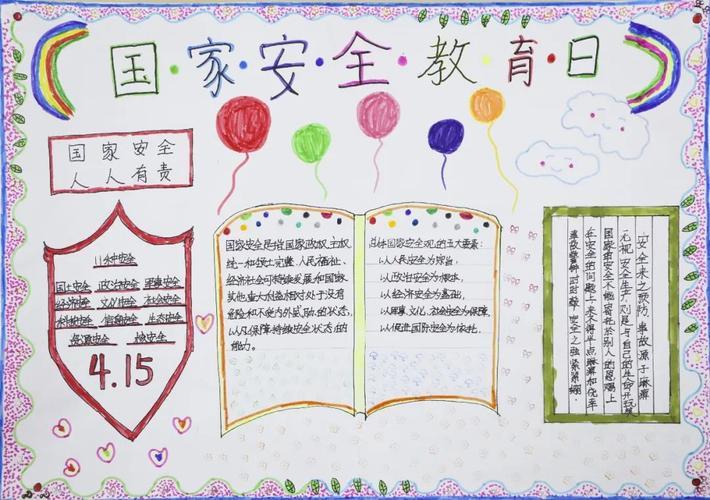 国·家·安·全·教·育·日
国家安全
人人有责
11种安全
国土安全 政治安全 军事安全
经济安全 文化安全 社会安全
科技安全 信息安全 生态安全
资源安全 核安全
4.15
国家安全是指国家政权、主权
统一和领土完整、人民福祉、
经济社会可持续发展和国家
其他重大利益相对处于没有
危险和不受内外威胁的状态,
以及保障持续安全状态的
能力。
总体国家安全观的五大要素:
以人民安全为宗旨,
以政治安全为根本,
以经济安全为基础,
以军事、文化、社会安全为保障,
以促进国际安全为依托。
安全来之预防,事故源于麻痹
无视安全生产则是与自己的生命开玩笑
国家的安全不能寄托於别人的恩赐上
在安全的问题上来不得半点麻痹和侥幸
事故警钟时时敲 安全之弦紧紧绷